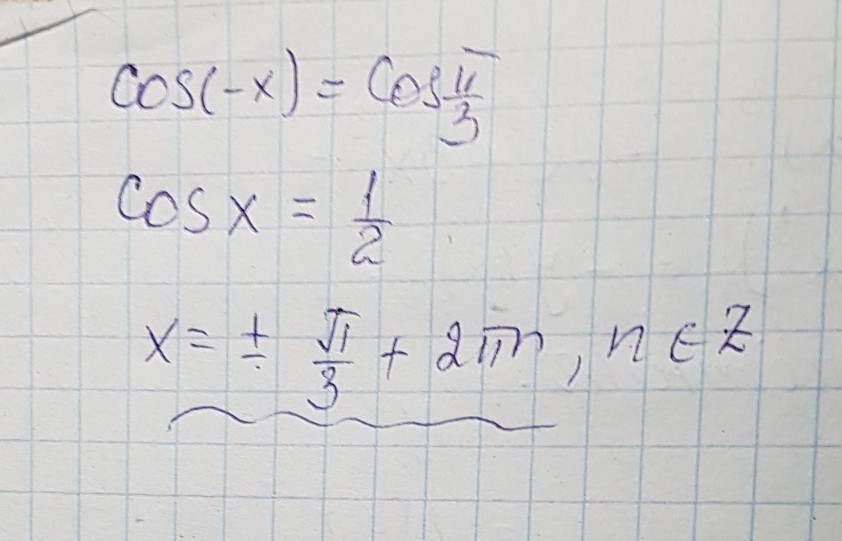 cos(-x) = cos π/3
cos x = 1/2
x = ± π/3 + 2πn, n ∈ Z